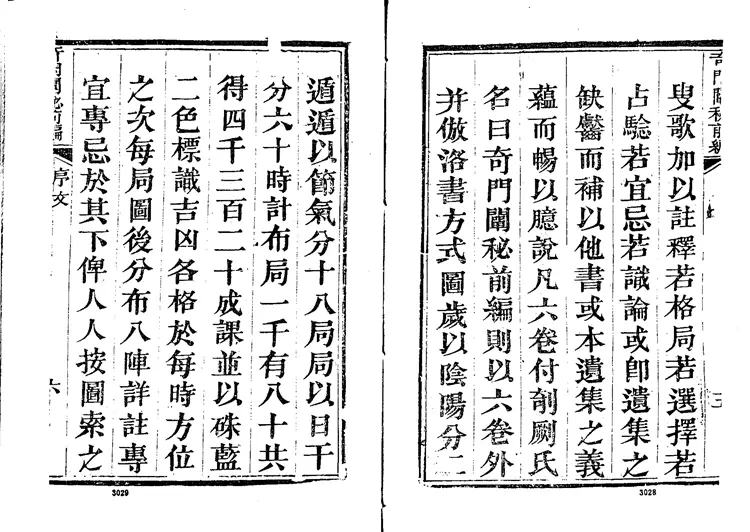 叟歌加以註釋若格局若選擇若
占驗若宜忌若識論或卽遺集之
缺蠹而補以他書或本遺集之義
蘊而暢以臆說凡六卷付剞劂氏
名曰奇門闡秘前編則以六卷外
并倣洛書方式圖歲以陰陽分二
奇門闡秘前編
三
3028
遁遁以節氣分十八局局以日干
分六十時計布局一千有八十共
得四千三百二十成課並以硃藍
二色標識吉凶各格於每時方位
之次每局圖後分布八陣詳註專
宜專忌於其下俾人人按圖索之
奇門闡秘前編
序文
六
3029